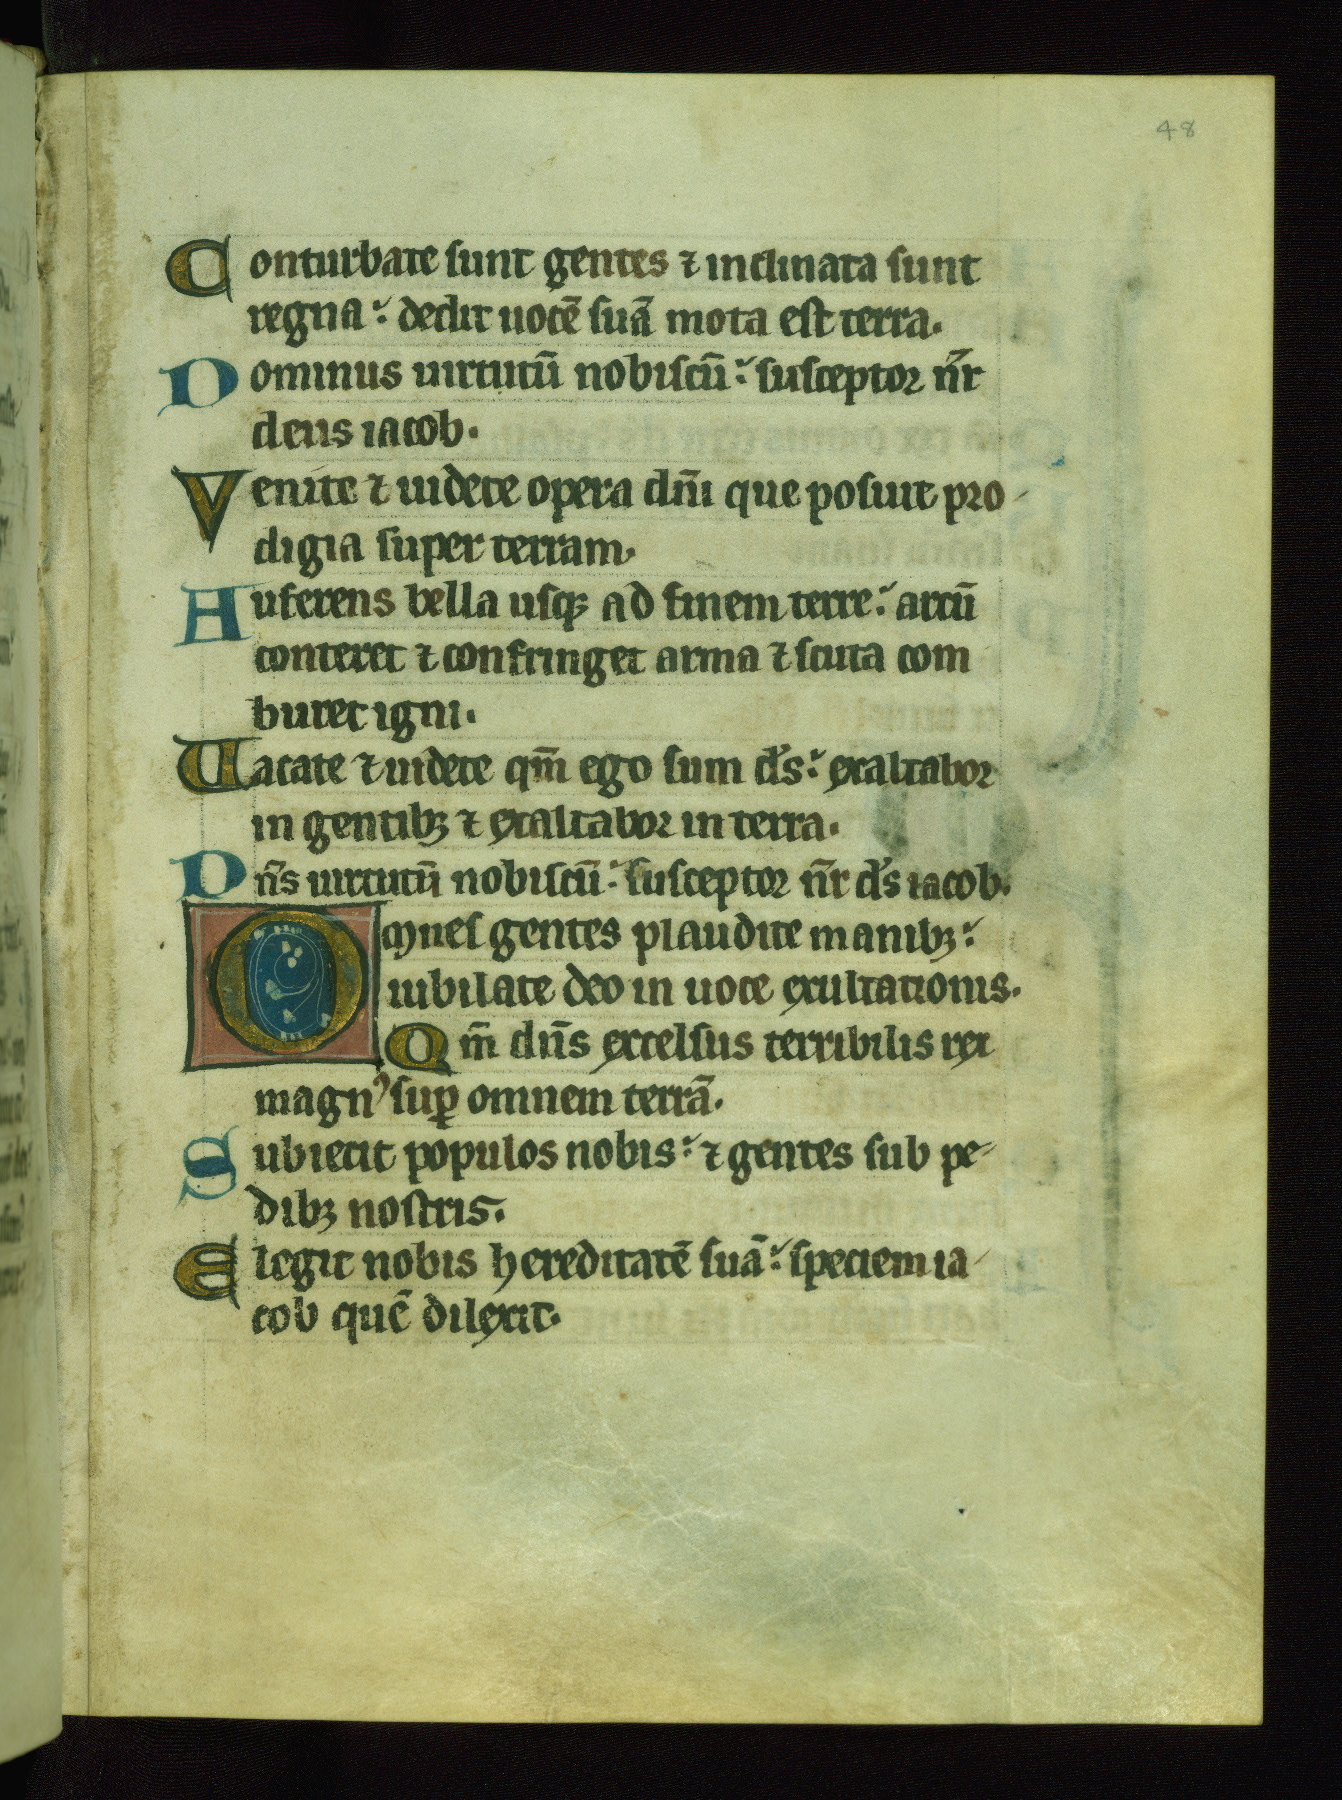 48
Conturbate sunt gentes ⁊ inclinata sunt
regna: dedit uocē suā mota est terra.
Dominus uirtutū nobiscū: susceptor nr̄
deus iacob.
Venite ⁊ uidete opera dn̄i que posuit pro-
digia super terram.
Auferens bella usqꝫ ad finem terre: arcū
conteret ⁊ confringet arma ⁊ scuta com
buret igni.
Uacate ⁊ uidete qm̄ ego sum ds̄: exaltabor
in gentibꝫ ⁊ exaltabor in terra.
Dn̄s uirtutū nobiscū: susceptor nr̄ ds̄ iacob.
Omnes gentes plaudite manibꝫ:
iubilate deo in uoce exultationis.
Qm̄ dn̄s excelsus terribilis rex
magnꝰ suꝑ omnem terrā.
Subiecit populos nobis: ⁊ gentes sub pe-
dibꝫ nostris.
Elegit nobis hereditatē suā: speciem ia-
cob quē dilexit.